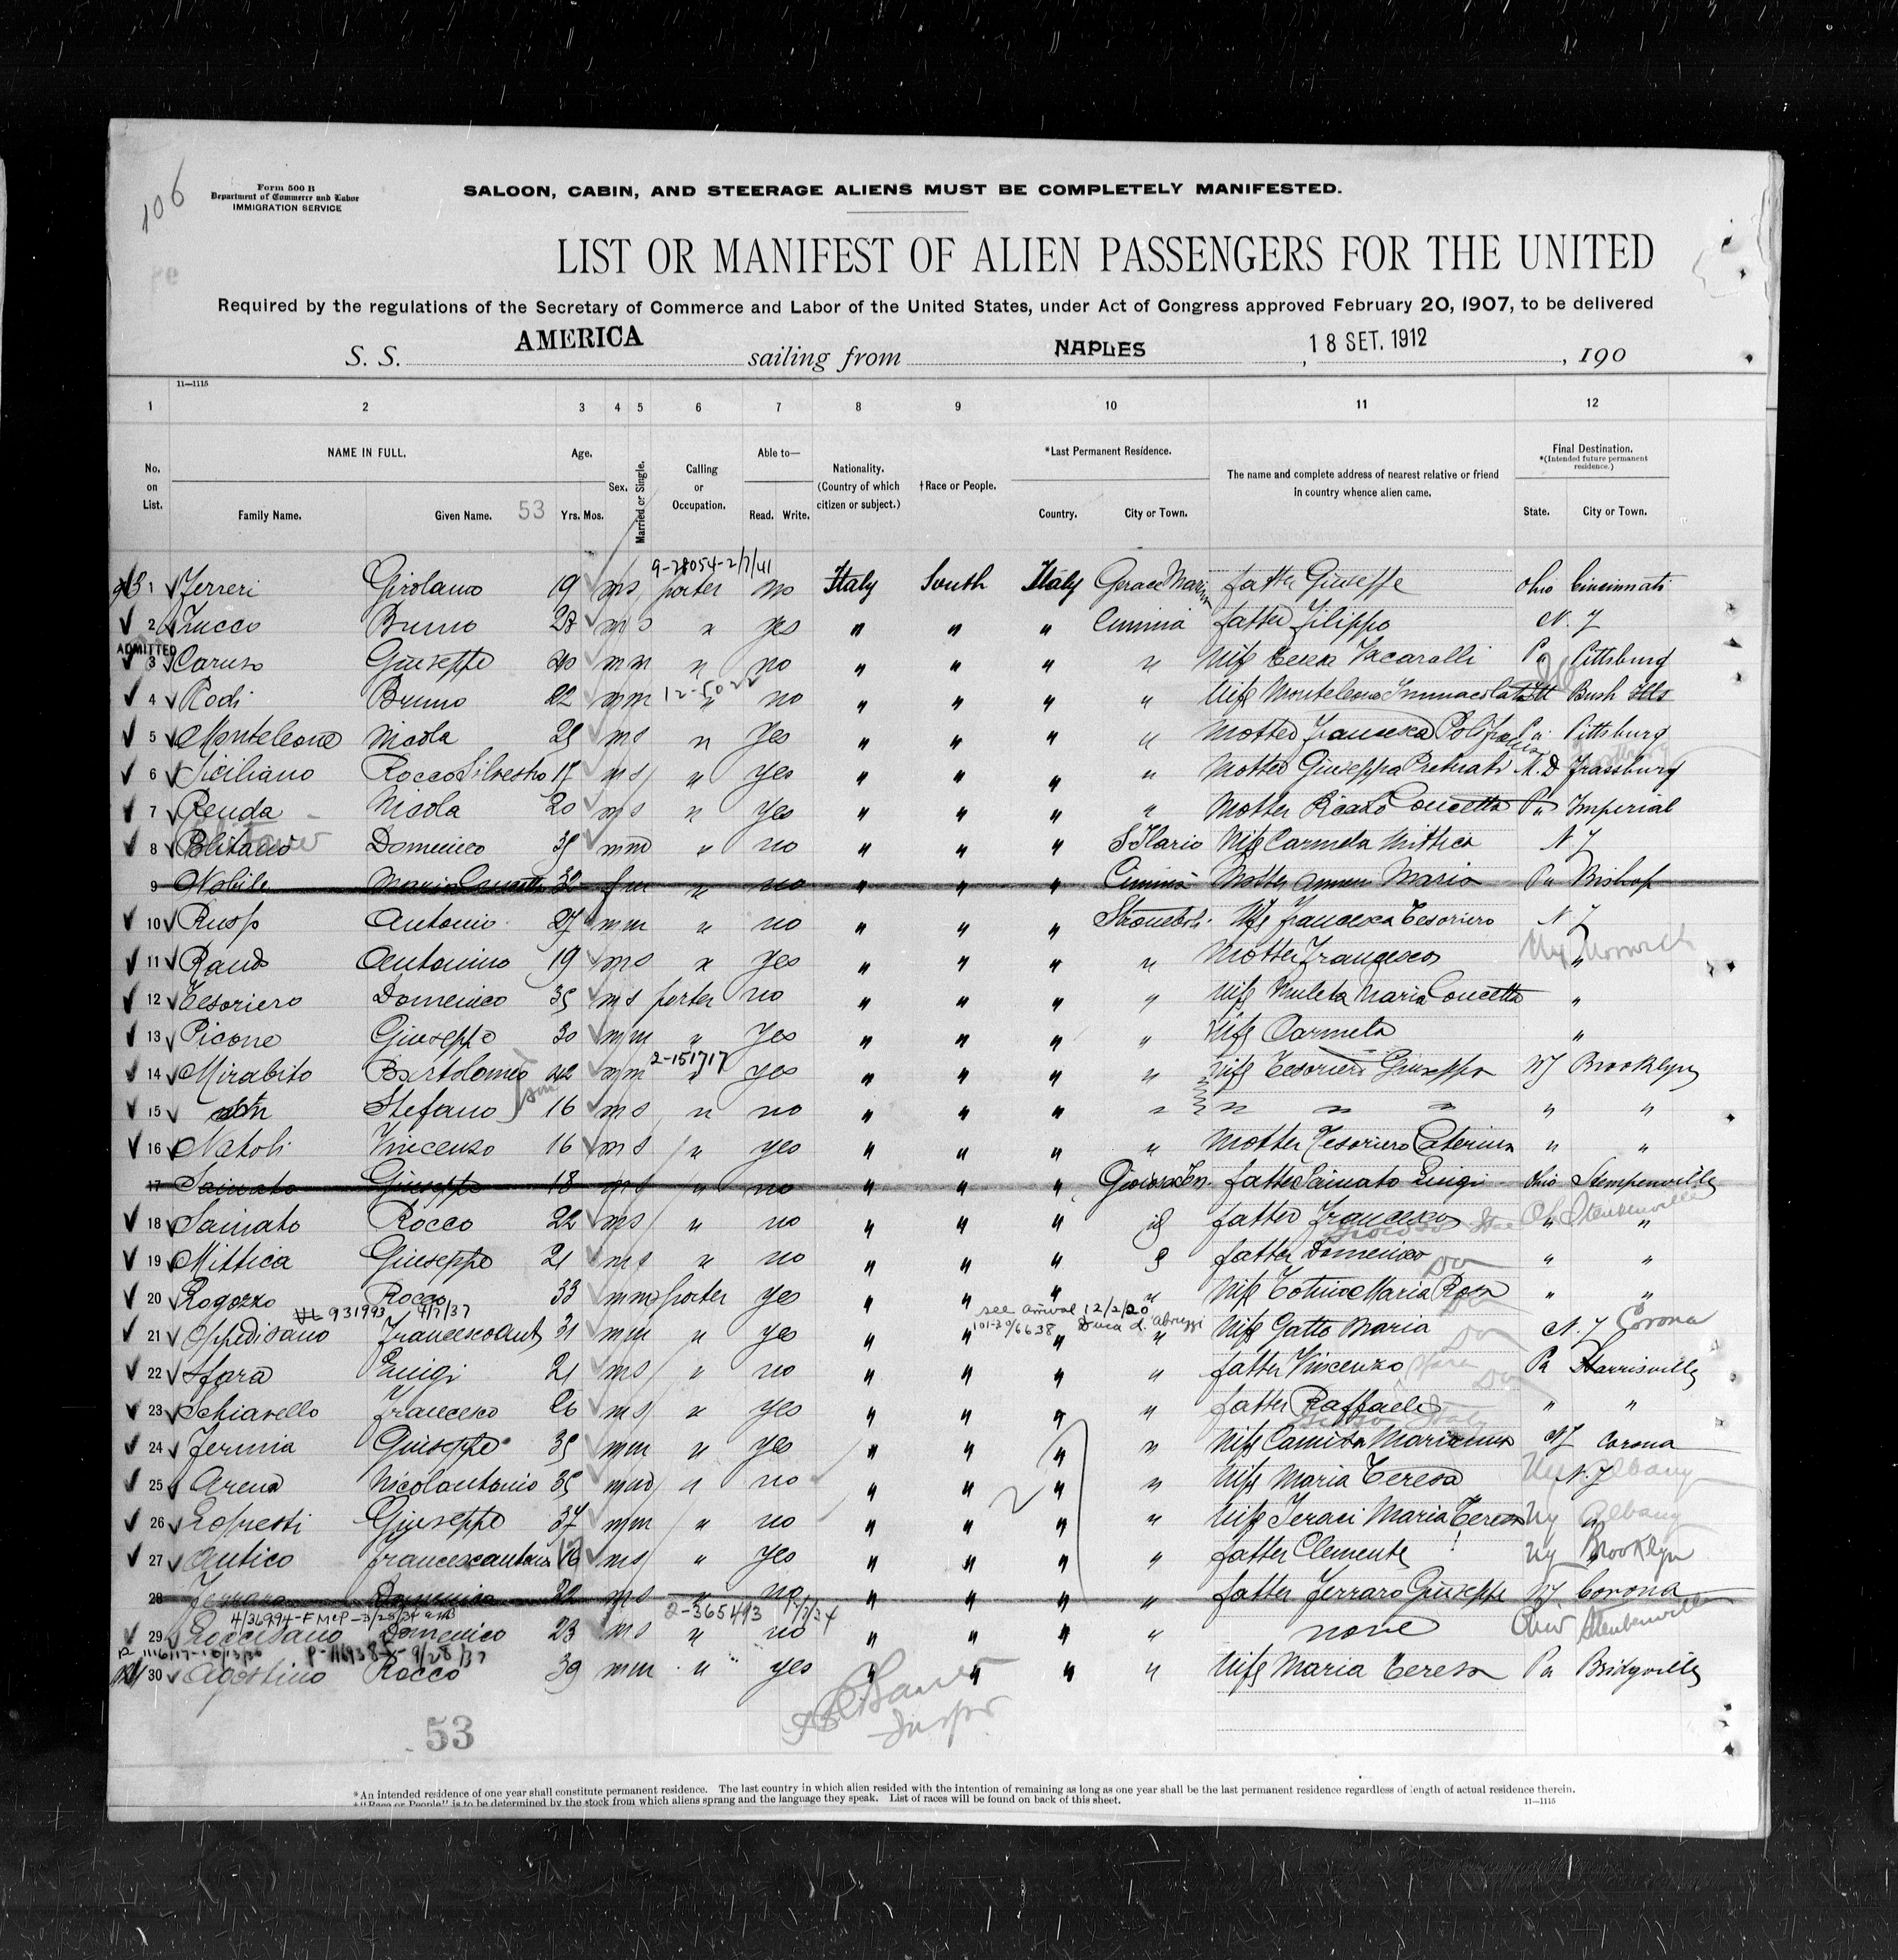 106
Form 500 B
Department of Commerce and Labor
IMMIGRATION SERVICE
SALOON, CABIN, AND STEERAGE ALIENS MUST BE COMPLETELY MANIFESTED.
LIST OR MANIFEST OF ALIEN PASSENGERS FOR THE UNITED
Required by the regulations of the Secretary of Commerce and Labor of the United States, under Act of Congress approved February 20, 1907, to be delivered
S. S. AMERICA sailing from NAPLES, 18 SET. 1912, 190
11—1115
1 2 3 4 5 6 7 8 9 10 11 12
No. on List. NAME IN FULL. Family Name. Given Name. 53 Age. Yrs. Mos. Sex. Married or Single. Calling or Occupation. Able to— Read. Write. Nationality. (Country of which citizen or subject.) †Race or People. *Last Permanent Residence. Country. City or Town. The name and complete address of nearest relative or friend in country whence alien came. Final Destination. *(Intended future permanent residence.) State. City or Town.
9-28054-2/7/41
1 Ferreri Girolamo 19 m s porter no Italy South Italy Gerace Marina father Giuseppe Ohio Cincinnati
2 Zucco Bruno 28 m s " yes " " " Ciminà father Filippo N. J
ADMITTED
3 Caruso Giuseppe 40 m m " no " " " " Wife Pa Pittsburg
12-5022
4 Rodi Bruno 22 m m " no " " " " Wife Monteleone Immacolata Ill Bush Ills
5 Monteleone Nicola 25 m s " yes " " " " Mother Francesca Pa Pittsburg
6 Siciliano Rocco Silvestro 17 m s " yes " " " " Mother Giuseppa M. D
7 Renda Nicola 20 m s " yes " " " " Mother Concetta Pa Imperial
8 Politano Domenico 35 m m " no " " " S Ilario Wife Carmela Mittica N J
9 Nobile Maria Concetta 32 f m " no " " " Ciminà Mother Maria Pa Bishop
10 Antonio 27 m m " no " " " Stromboli Wife Francesca Tesoriero N J
11 Antonino 19 m s " yes " " " " Mother Francesca Ny Norwich
12 Tesoriero Domenico 35 m s porter no " " " " Wife Maria Concetta "
13 Picone Giuseppe 30 m m " yes " " " " Wife Carmela "
2-151717
14 Mirabito Bartolomeo 42 m m " yes " " " " Wife Tesoriero Giuseppa NY Brooklyn
15 Stefano son 16 m s " no " " " " " " " " "
16 Natoli Vincenzo 16 m s " yes " " " " Mother Tesoriero Caterina " "
17 Sainato Giuseppe 18 m s " no " " " Gioiosa Ion. father Sainato Luigi Ohio Stempenville
18 Sainato Rocco 22 m s " no " " " father Francesco " Steubenville
19 Mittica Giuseppe 21 m s " no " " " father Domenico " "
20 Rogozzo Rocco 33 m m porter yes " " " " Wife Maria Rosa " "
931993 4/7/37 see arrival 12/2/20
101-30/6638 Duca d. Abruzzi
21 Spedisano Francesco Ant 31 m m " yes " " " " Wife Gatto Maria N. Y Corona
22 Sfara Luigi 21 m s " no " " " " father Vincenzo Sfara Pa Harrisville
23 Schiavello Francesco 26 m s " yes " " " " father Raffaele " "
24 Femia Giuseppe 35 m m " yes " " " " Wife NY Corona
25 Arena Nicolantonio 35 m m " no " " " " Wife Maria Teresa N. Y Albany
26 Lopresti Giuseppe 37 m m " no " " " " Wife Ieraci Maria Teresa Ny Albany
27 Antico Francescantonio 16 m s " yes " " " " father Clemente Ny Brooklyn
28 Ferrara Domenica 22 m s " no " " " " father Ferraro Giuseppe NY Corona
2-365493
29 Roccisano Domenico 23 m s " no " " " " none Ohio Steubenville
P-116938 9/28/37
30 Agostino Rocco 39 m m " yes " " " " Wife Maria Teresa Pa Bridgville
53
*An intended residence of one year shall constitute permanent residence. The last country in which alien resided with the intention of remaining as long as one year shall be the last permanent residence regardless of length of actual residence therein.
†"Race or People" is to be determined by the stock from which aliens sprang and the language they speak. List of races will be found on back of this sheet.
11—1115